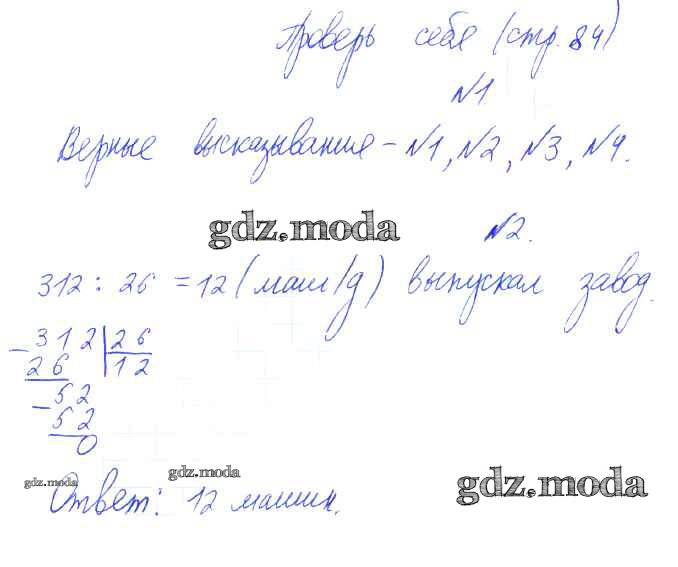 Проверь себя (стр. 84)
№1
Верные высказывания - №1, №2, №3, №4.
gdz.moda
№2.
312 : 26 = 12 (маш/д) выпускал завод.
- 312 | 26
26 | 12
- 52
52
0
gdz.moda
gdz.moda
gdz.moda
Ответ: 12 машин.